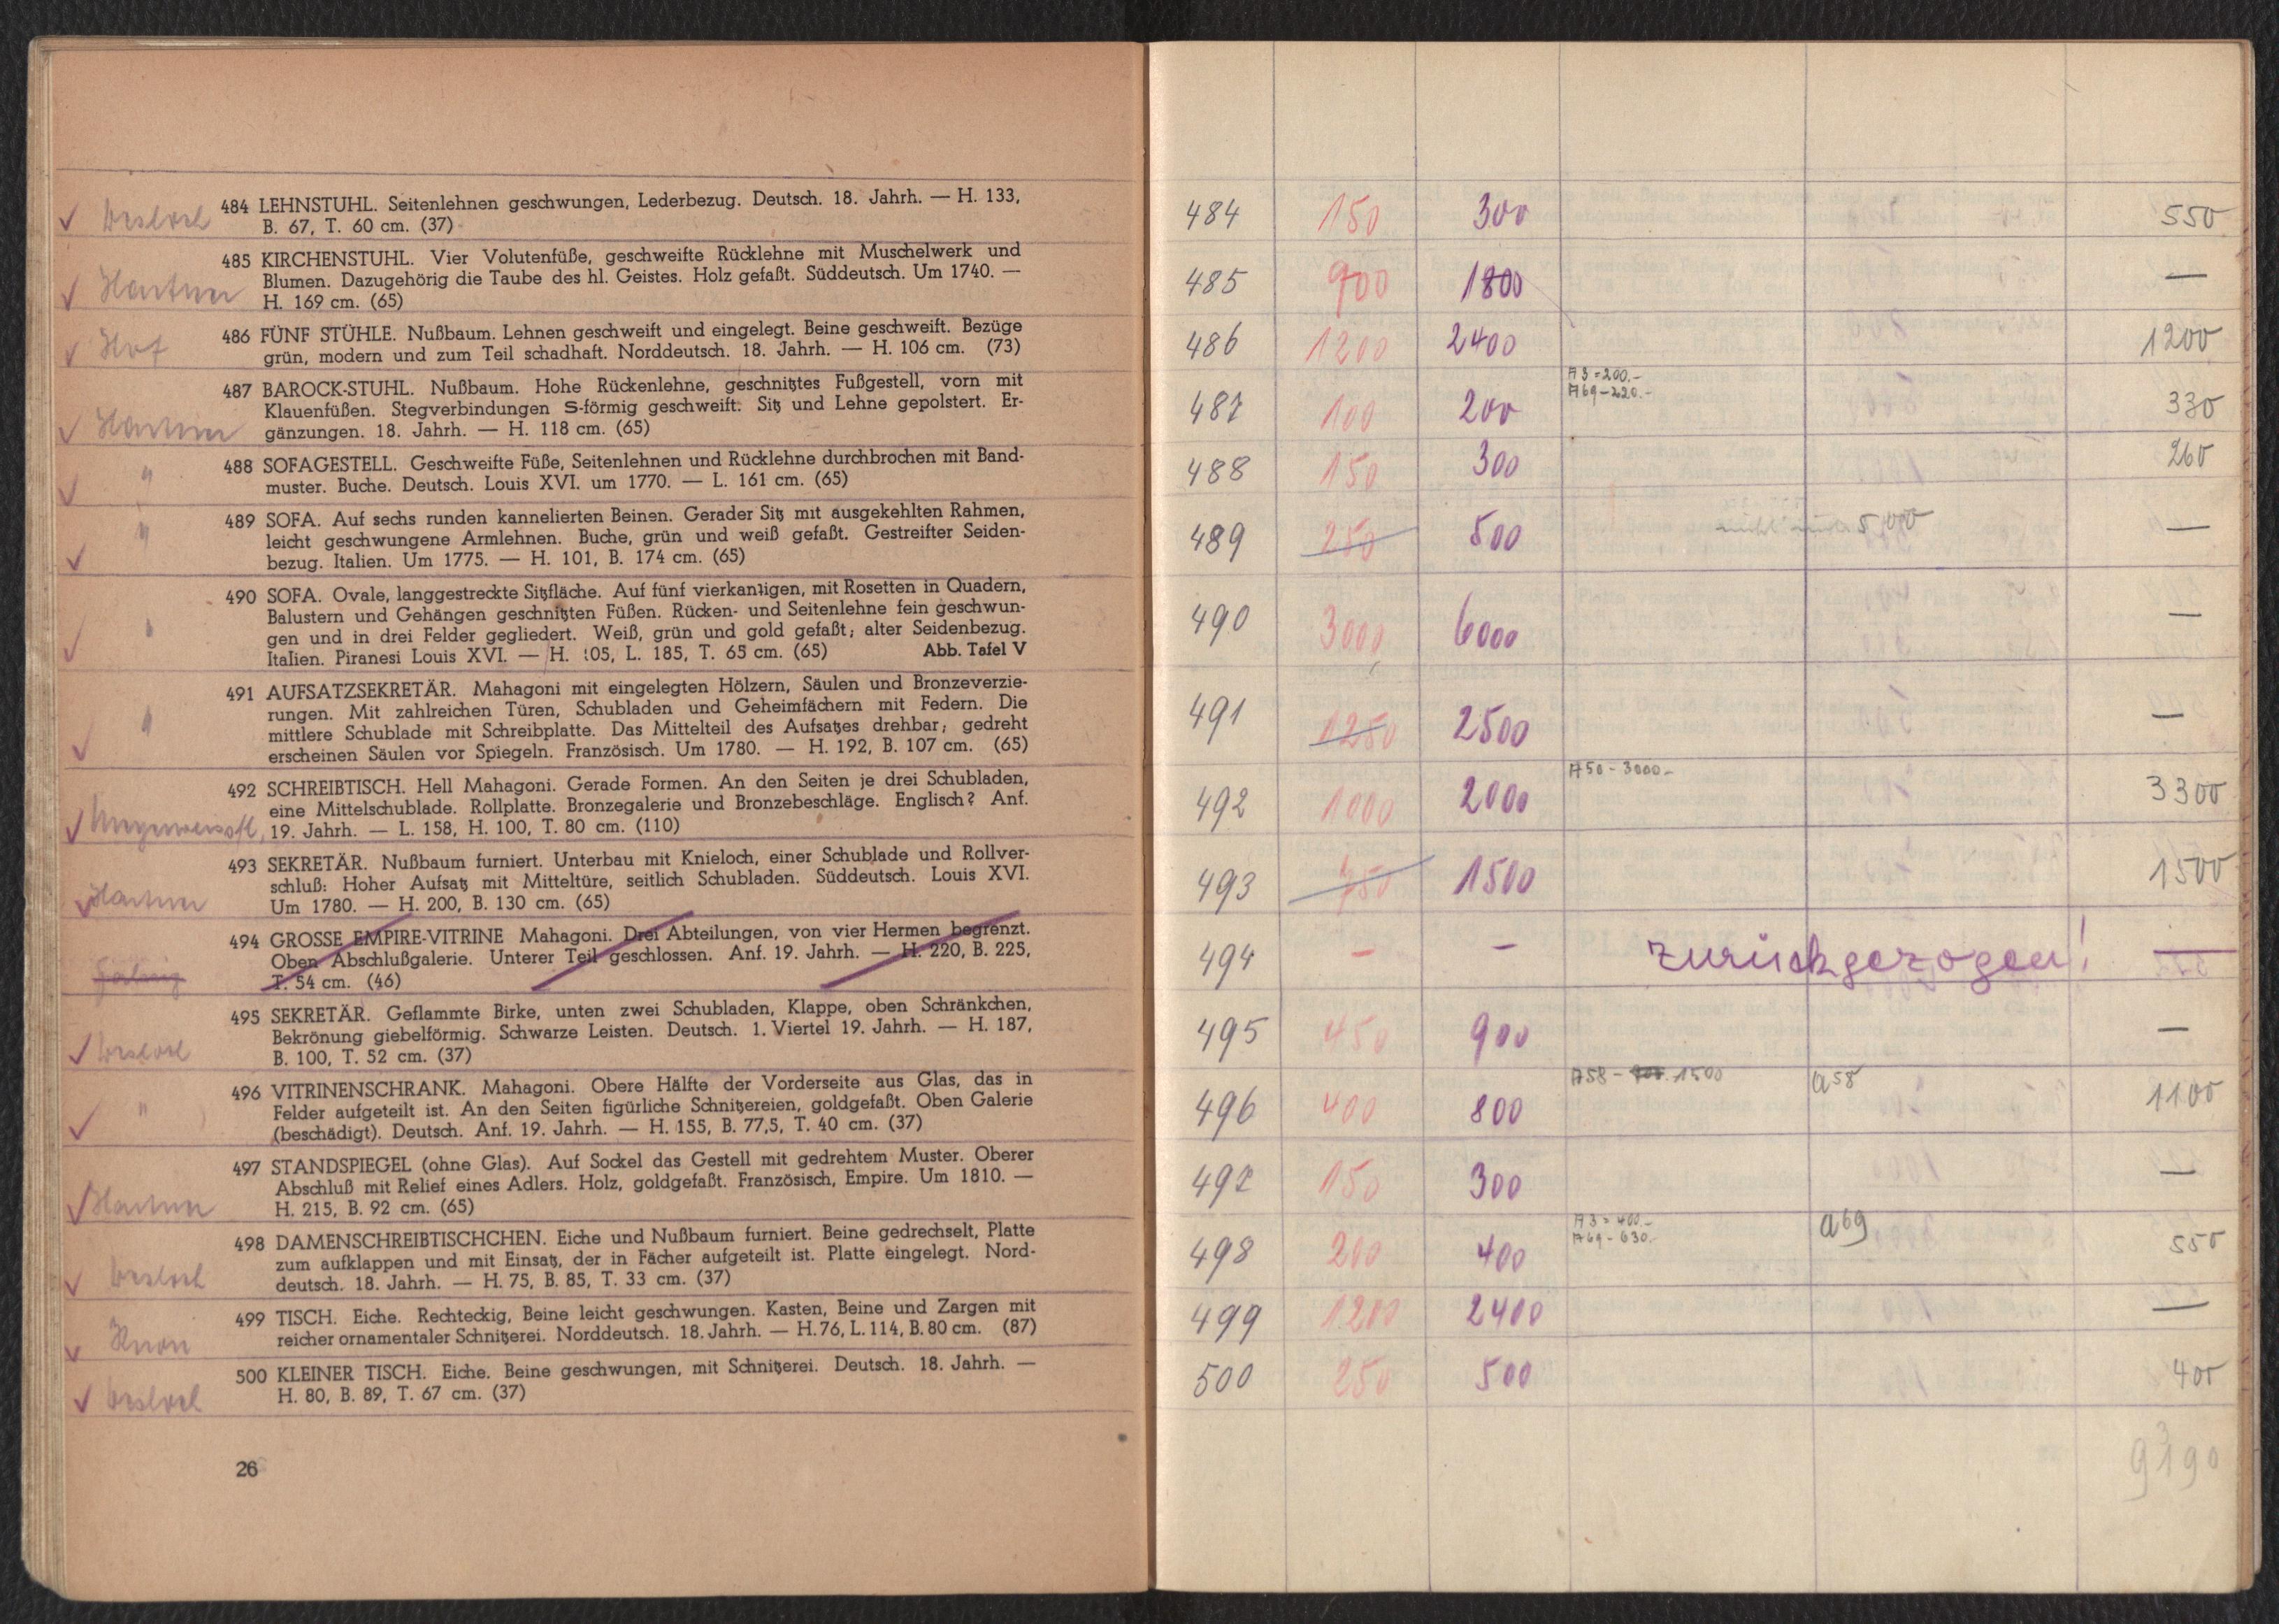 484 LEHNSTUHL. Seitenlehnen geschwungen, Lederbezug. Deutsch. 18. Jahrh. — H. 133,
B. 67, T. 60 cm. (37)
485 KIRCHENSTUHL. Vier Volutenfüße, geschweifte Rücklehne mit Muschelwerk und
Blumen. Dazugehörig die Taube des hl. Geistes. Holz gefaßt. Süddeutsch. Um 1740. —
H. 169 cm. (65)
486 FÜNF STÜHLE. Nußbaum. Lehnen geschweift und eingelegt. Beine geschweift. Bezüge
grün, modern und zum Teil schadhaft. Norddeutsch. 18. Jahrh. — H. 106 cm. (73)
487 BAROCK-STUHL. Nußbaum. Hohe Rückenlehne, geschnitztes Fußgestell, vorn mit
Klauenfüßen. Stegverbindungen S-förmig geschweift. Sitz und Lehne gepolstert. Er-
gänzungen. 18. Jahrh. — H. 118 cm. (65)
488 SOFAGESTELL. Geschweifte Füße, Seitenlehnen und Rücklehne durchbrochen mit Band-
muster. Buche. Deutsch. Louis XVI. um 1770. — L. 161 cm. (65)
489 SOFA. Auf sechs runden kannelierten Beinen. Gerader Sitz mit ausgekehlten Rahmen,
leicht geschwungene Armlehnen. Buche, grün und weiß gefaßt. Gestreifter Seiden-
bezug. Italien. Um 1775. — H. 101, B. 174 cm. (65)
490 SOFA. Ovale, langgestreckte Sitzfläche. Auf fünf vierkantigen, mit Rosetten in Quadern,
Balustern und Gehängen geschnitzten Füßen. Rücken- und Seitenlehne fein geschwun-
gen und in drei Felder gegliedert. Weiß, grün und gold gefaßt; alter Seidenbezug.
Italien. Piranesi Louis XVI. — H. 105, L. 185, T. 65 cm. (65) Abb. Tafel V
491 AUFSATZSEKRETÄR. Mahagoni mit eingelegten Hölzern, Säulen und Bronzeverzie-
rungen. Mit zahlreichen Türen, Schubladen und Geheimfächern mit Federn. Die
mittlere Schublade mit Schreibplatte. Das Mittelteil des Aufsatzes drehbar; gedreht
erscheinen Säulen vor Spiegeln. Französisch. Um 1780. — H. 192, B. 107 cm. (65)
492 SCHREIBTISCH. Hell Mahagoni. Gerade Formen. An den Seiten je drei Schubladen,
eine Mittelschublade. Rollplatte. Bronzegalerie und Bronzebeschläge. Englisch? Anf.
19. Jahrh. — L. 158, H. 100, T. 80 cm. (110)
493 SEKRETÄR. Nußbaum furniert. Unterbau mit Knieloch, einer Schublade und Rollver-
schluß: Hoher Aufsatz mit Mitteltüre, seitlich Schubladen. Süddeutsch. Louis XVI.
Um 1780. — H. 200, B. 130 cm. (65)
494 GROSSE EMPIRE-VITRINE Mahagoni. Drei Abteilungen, von vier Hermen begrenzt.
Oben Abschlußgalerie. Unterer Teil geschlossen. Anf. 19. Jahrh. — H. 220, B. 225,
T. 54 cm. (46)
495 SEKRETÄR. Geflammte Birke, unten zwei Schubladen, Klappe, oben Schränkchen,
Bekrönung giebelförmig. Schwarze Leisten. Deutsch. 1. Viertel 19. Jahrh. — H. 187,
B. 100, T. 52 cm. (37)
496 VITRINENSCHRANK. Mahagoni. Obere Hälfte der Vorderseite aus Glas, das in
Felder aufgeteilt ist. An den Seiten figürliche Schnitzereien, goldgefaßt. Oben Galerie
(beschädigt). Deutsch. Anf. 19. Jahrh. — H. 155, B. 77,5, T. 40 cm. (37)
497 STANDSPIEGEL (ohne Glas). Auf Sockel das Gestell mit gedrehtem Muster. Oberer
Abschluß mit Relief eines Adlers. Holz, goldgefaßt. Französisch, Empire. Um 1810. —
H. 215, B. 92 cm. (65)
498 DAMENSCHREIBTISCHCHEN. Eiche und Nußbaum furniert. Beine gedrechselt, Platte
zum aufklappen und mit Einsatz, der in Fächer aufgeteilt ist. Platte eingelegt. Nord-
deutsch. 18. Jahrh. — H. 75, B. 85, T. 33 cm. (37)
499 TISCH. Eiche. Rechteckig, Beine leicht geschwungen. Kasten, Beine und Zargen mit
reicher ornamentaler Schnitzerei. Norddeutsch. 18. Jahrh. — H. 76, L. 114, B. 80 cm. (87)
500 KLEINER TISCH. Eiche. Beine geschwungen, mit Schnitzerei. Deutsch. 18. Jahrh. —
H. 80, B. 89, T. 67 cm. (37)
26
484 150 300 550
485 900 1800 —
486 1200 2400 1200
A3=200.-
A69-220.-
487 100 200 330
488 150 300 260
489 250 500 —
490 3000 6000 —
491 1250 2500 —
A50-3000-
492 1000 2000 3300
493 750 1500 1500
494 - - zurückgezogen! —
495 450 900 —
A58- 1500 a58
496 400 800 1100
497 150 300 —
A3=400.- a69
A69-630.-
498 200 400 550
499 1200 2400 —
500 250 500 400
9190